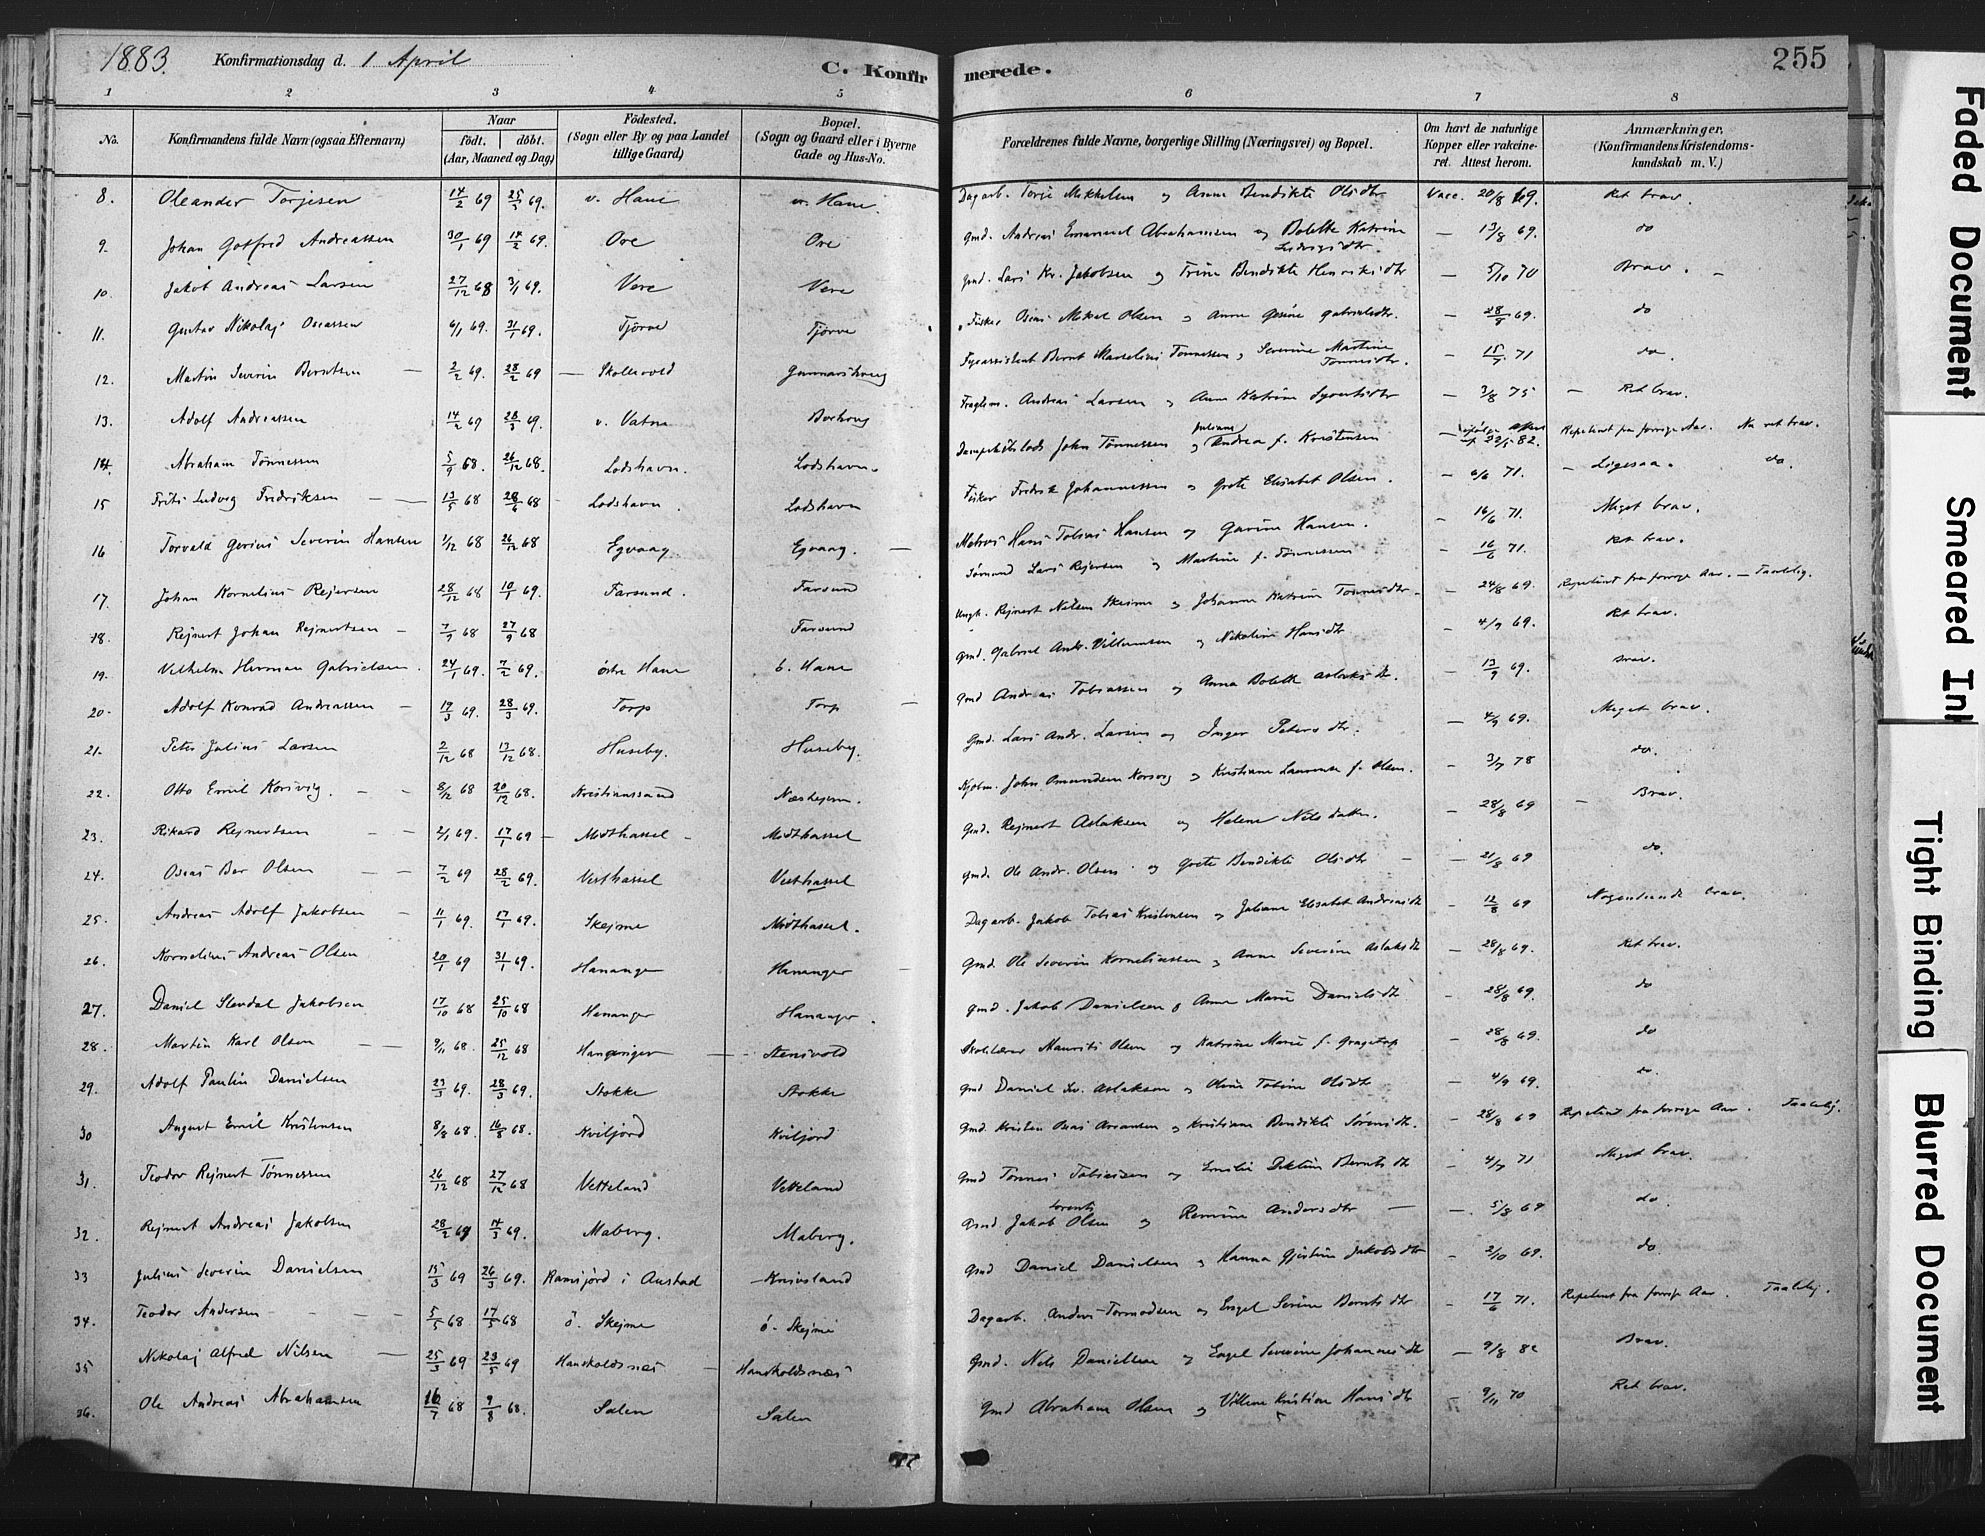 1883. Konfirmationsdag d. 1 April
C. Konfirmerede.
255
1 2 3 4 5 6 7 8
No.
Konfirmandens fulde Navn (ogsaa Efternavn)
Naar
født. døbt.
(Aar, Maaned og Dag)
Fødested.
(Sogn eller By og paa Landet
tillige Gaard)
Bopæl.
(Sogn og Gaard eller i Byerne
Gade og Hus-No.
Forældrenes fulde Navne, borgerlige Stilling (Næringsvei) og Bopæl.
Om havt de naturlige
Kopper eller vakcine-
ret. Attest herom.
Anmærkninger.
(Konfirmandens Kristendoms-
kundskab m. V.)
8. Oleander Torjesen 14/2 69 25/3 69. v. Hane v. Hane. Dagarb. Torje Mikkelsen og Anne Bendikte Olsdtr Vacc. 20/8 69. Ret brav.
9. Johan Gotfred Andreassen 30/1 69 14/2 69. Ore Ore Gmd. Andreas Emanuel Abrahamsen og Bolette Katrine Ludvigsdtr. — 13/8 69. do
10 Jakob Andreas Larsen 27/12 68 3/1 69. Vere Vere Gmd. Lars Kr. Jakobsen og Trine Bendikte Henriksdtr — 5/10 70 Brav.
11. Gustav Nikolaj Oseassen 6/1 69. 31/1 69. Tjörve Tjörve Fisker Oseas Mekal Olsen og Anne Gesine Gabrielsdtr. — 28/8 69. do
12. Martin Severin Berntsen 2/2 69. 28/2 69 Skollevold Gunnarshoug Fyrassistent Bernt Marselius Tønnessen og Severine Martine Tønnesdtr. — 15/7 71 do.
13. Adolf Andreassen 14/2 69 28/3 69. v. Vatne Borhoug Andreas Larsen og Anne Katrine Syvertsdtr — 3/8 75 Ret brav.
14. Abraham Tønnessen 5/9 68. 26/12 68. Lodshavn. Lodshavn. John Tønnessen og Juliane Andrea f. Kristensen 82. Repetent fra forrige Aar. Nu ret brav.
15 Frits Ludvig Fredriksen 13/5 68 28/6 68 Lodshavn. Lodshavn Fisker Fredrik Johannessen og Grete Elisabet Olsen. — 6/6 71. — Ligesaa. do.
16 Torvald Gerius Severin Hansen 1/12 68 26/12 68 Egvaag Egvaag. Matros Hans Tobias Hansen og Gurine Hansen. — 16/6 71. Meget brav.
17. Johan Kornelius Rejersen 28/12 68 10/1 69. Farsund. Farsund Sømand Lars Rejersen og Martine f. Tønnessen — 16/6 71. Ret brav.
18. Rejnert Johan Rejnertsen 7/9 68 27/9 68 Farsund Rejnert Nilsen Skeime og Johanne Katrine Tønnesdtr. — 24/8 69. Repetent fra forrige Aar. — Taalelig.
19. Vilhelm Herman Gabrielsen. 24/1 69. 7/2 69. östre Hane ö. Hane Gmd. Gabriel Andr. Villumsen og Nikoline Hansdtr — 4/9 69. Ret brav.
20. Adolf Konrad Andreassen 14/3 69. 28/3 69. Torp Torp Gmd Andreas Tobiassen og Anna Bolette Aslaksdtr. — 13/9 69. Brav.
21. Peter Julius Larsen 2/12 68 13/12 68. Huseby. Huseby. Gmd. Lars Andr. Larsen og Inger Petersdtr. — 4/9 69. Meget brav.
22. Otto Emil Korsvig. 8/12 68 20/12 68. Kristianssand Næsheim. Kjøbm. John Omundsen Korsvig og Kristiane Laurense f. Olsen. — 3/7 78 do.
23. Rikard Rejnertsen 2/1 69. 17/1 69 Midthassel Midthassel Gmd. Rejnert Aslaksen og Helene Nilsdatter. — 28/8 69 Brav.
24. Oseas Ber Olsen 7/2 69 28/2 69. Vesthassel Vesthassel Gmd. Ole Andr. Olsen og Grete Bendikte Olsdtr — 21/8 69 do.
25. Andreas Adolf Jakobsen 11/1 69. 17/1 69. Skejme Midthassel. Dagarb. Jakob Tobias Kristensen og Juliane Elisabet Andreasdtr — 12/8 69 Nogenlunde brav.
26. Kornelius Andreas Olsen 20/1 69 31/1 69. Hananger Hananger Gmd. Ole Severin Korneliussen og Anne Severine Aslaksdtr — 28/8 69. Ret brav.
27. Daniel Stendal Jakobsen 17/10 68 25/10 68 Hananger Hananger. Gmd. Jakob Danielsen og Anne Marie Danielsdtr — 28/8 69. do
28. Martin Karl Olsen 9/11 68. 25/12 68 Hananger Stensvold Skolelærer Maurits Olsen og Katrine Marie f. — 28/8 69. do
29. Adolf Paulin Danielsen 23/3 69. 28/3 69. Stokke Stokke Gmd Daniel Aslaksen og Oline Tobine Olsdtr — 4/9 69. do.
30 August Emil Kristensen 8/8 68. 16/8 68. Kviljord Kviljord Gmd. Kristen Oseas Arcansen og Kristiane Bendikte Sørensdtr. — 28/8 69 Repetent fra forrige Aar. Taalelig.
31. Teodor Rejnert Tønnessen 26/12 68 27/12 68 Vetteland Vetteland Gmd Tønnes Tobiassen og Emilie Berntsdtr — 4/7 71 Meget brav.
32. Rejnert Andreas Jakobsen 28/2 69 14/3 69. Maberg. Maberg. Gmd Jakob Lorents Olsen og Remine Andersdtr — 5/8 69 do
33 Julius Severin Danielsen 15/3 69 26/3 69. Ramsjord i Austad Knivsland Gmd Daniel Danielsen og Hanna Gjestine Jakobsdtr — 2/10 69. do
34. Teodor Andersen 5/5 68 17/5 68 ö. Skejme ö. Skejme Dagarb. Anders Tormodsen og Engel Serine Berntsdtr — 17/6 71. Repetent fra forrige Aar. Taalelig.
35 Nikolaj Alfred Nilsen 25/3 69 23/5 69 Hauskoldsnæs Hauskoldsnæs Gmd. Nils Danielsen og Engel Severine Johannesdtr — 9/8 82 Brav.
36. Ole Andreas Abrahamsen 16/7 68 9/8 68. Salen Salen Gmd Abraham Olsen og Villene Kristine Hansdtr — 9/11 70 Ret brav.
Faded Document
Smeared Ink
Tight Binding
Blurred Document